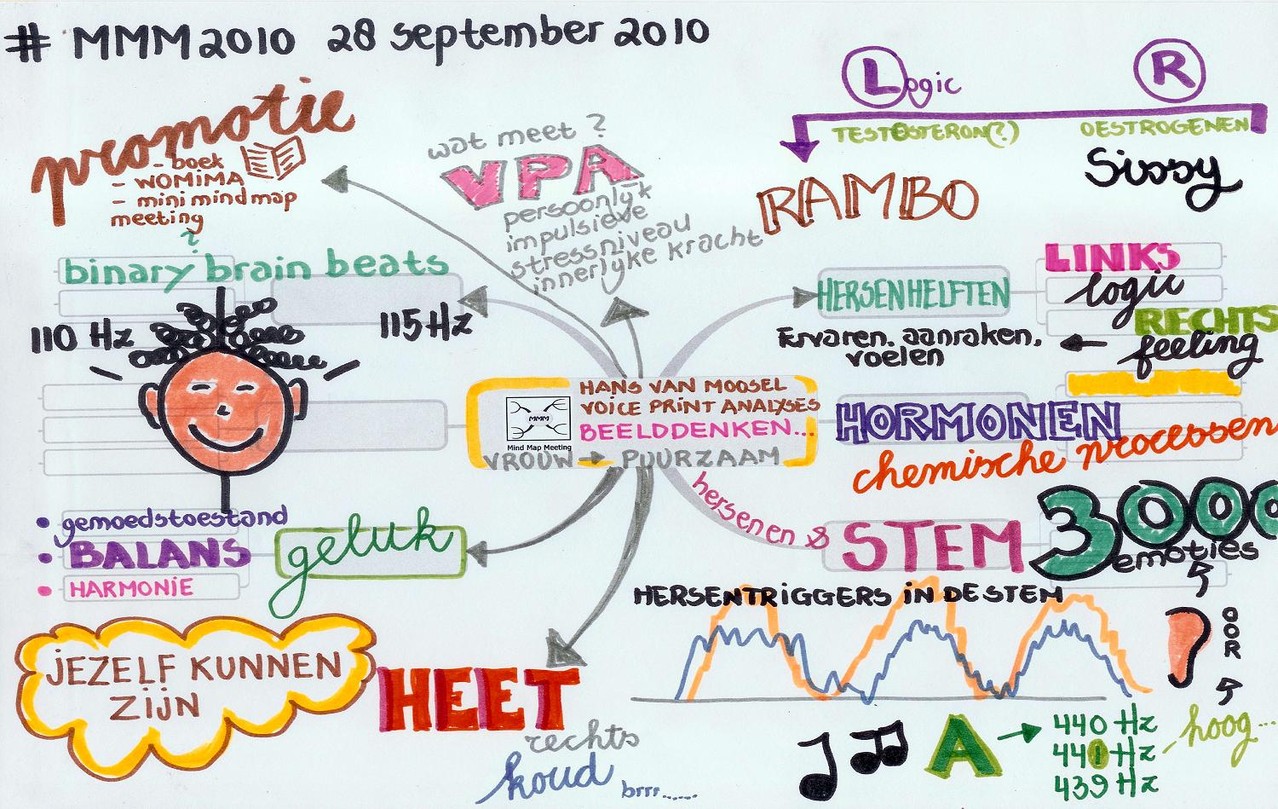 # MMM2010 28 september 2010
promotie
- boek
- WOMIMA
- mini mind map
meeting
?
wat meet ?
VPA
persoonlijk
impulsieve
stressniveau
innerlijke kracht
Logic
R
TESTOSTERON(?)
OESTROGENEN
RAMBO
Sissy
binary brain beats
110 Hz
115 Hz
HERSENHELFTEN
LINKS
logic
RECHTS
feeling
Ervaren. aanraken,
voelen
HANS VAN MOOSEL
VOICE PRINT ANALYSES
BEELDDENKEN...
VROUW → PUURZAAM
MMM
Mind Map Meeting
HORMONEN
chemische processen
• gemoedstoestand
• BALANS
• HARMONIE
geluk
hersenen &
STEM
3000
emoties
HERSENTRIGGERS iN DE STEM
OOR
JEZELF KUNNEN
ZIJN
HEET
rechts
koud brrr......
A → 440 Hz
441 Hz
439 Hz
hoog...